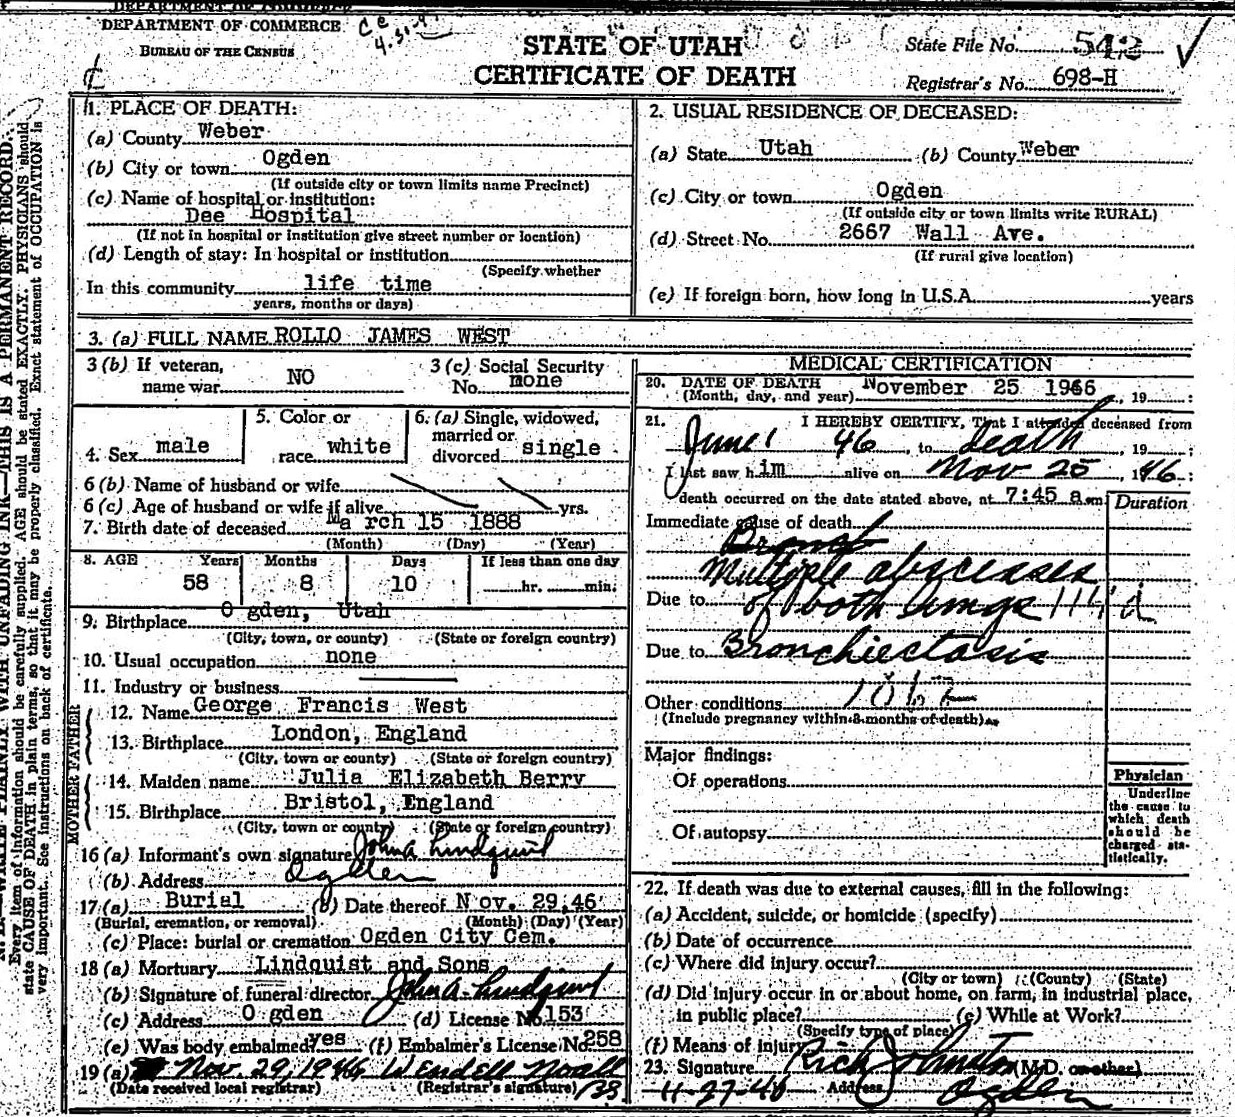 DEPARTMENT OF COMMERCE
BUREAU OF THE CENSUS
STATE OF UTAH
CERTIFICATE OF DEATH
State File No. 542
Registrar's No. 698-H
1. PLACE OF DEATH:
(a) County Weber
(b) City or town Ogden
(If outside city or town limits name Precinct)
(c) Name of hospital or institution:
Dee Hospital
(If not in hospital or institution give street number or location)
(d) Length of stay: In hospital or institution
(Specify whether
In this community life time
years, months or days)
2. USUAL RESIDENCE OF DECEASED:
(a) State Utah (b) County Weber
(c) City or town Ogden
(If outside city or town limits write RURAL)
(d) Street No. 2667 Wall Ave.
(If rural give location)
(e) If foreign born, how long in U.S.A. years
3. (a) FULL NAME ROLLO JAMES WEST
3 (b) If veteran, name war NO
3 (c) Social Security No. none
4. Sex male
5. Color or race white
6. (a) Single, widowed, married or divorced single
6 (b) Name of husband or wife
6 (c) Age of husband or wife if alive yrs.
7. Birth date of deceased March 15 1888
(Month) (Day) (Year)
8. AGE Years Months Days If less than one day
58 8 10 hr. min.
9. Birthplace Ogden, Utah
(City, town, or county) (State or foreign country)
10. Usual occupation none
11. Industry or business
FATHER
12. Name George Francis West
13. Birthplace London, England
(City, town or county) (State or foreign country)
MOTHER
14. Maiden name Julia Elizabeth Berry
15. Birthplace Bristol, England
(City, town or county) (State or foreign country)
16 (a) Informant's own signature John A Lindquist
(b) Address Ogden
17 (a) Burial (b) Date thereof Nov. 29,46
(Burial, cremation, or removal) (Month) (Day) (Year)
(c) Place: burial or cremation Ogden City Cem.
18 (a) Mortuary Lindquist and Sons
(b) Signature of funeral director John A. Lindquist
(c) Address Ogden (d) License No. 153
(e) Was body embalmed? yes (f) Embalmer's License No. 258
19 (a) Nov. 29, 1946 Wendell Noall
(Date received local registrar) (Registrar's signature)
MEDICAL CERTIFICATION
20. DATE OF DEATH November 25 1946, 19
(Month, day, and year)
21. I HEREBY CERTIFY, That I attended deceased from
June 1 46, to death, 19
I last saw him alive on Nov 25, 1946
death occurred on the date stated above, at 7:45 a.m
Duration
Immediate cause of death
Multiple abscesses
Due to of both lungs
Due to Bronchiectasis
Other conditions
(Include pregnancy within 3 months of death)
Major findings:
Of operations
Of autopsy
Physician
Underline
the cause to
which death
should be
charged sta-
tistically.
22. If death was due to external causes, fill in the following:
(a) Accident, suicide, or homicide (specify)
(b) Date of occurrence
(c) Where did injury occur?
(City or town) (County) (State)
(d) Did injury occur in or about home, on farm, in industrial place,
in public place? (e) While at Work?
(Specify type of place)
(f) Means of injury
23. Signature Rich Johnston (M.D. or other)
11-27-46 Address Ogden